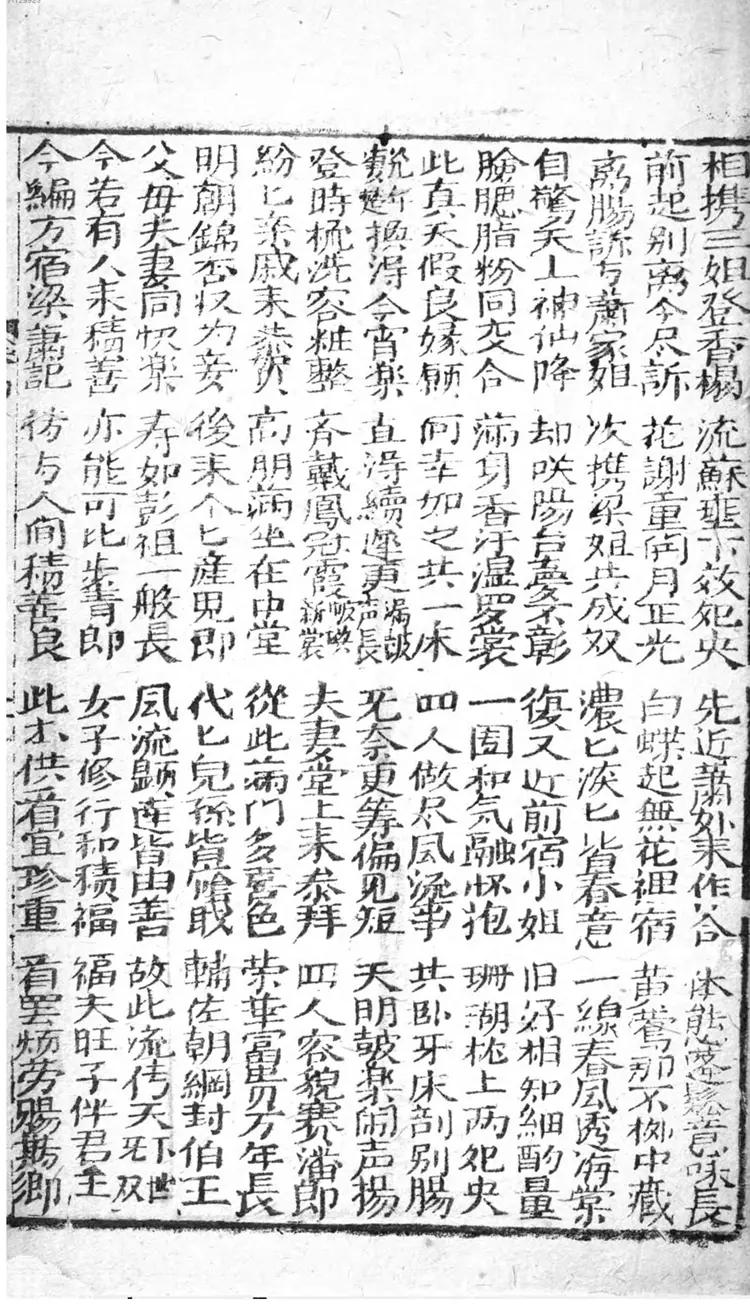 相携三姐登香榻 流蘇埀下效夗央 先近蕭姐来作合 体態蓬鬆意味長
前起别离今尽訴 花謝重向月正光 白蝶起無花裡宿 黄鶯那不柳中藏
离腸訴与蕭家姐 次携梁姐共成双 濃匕淡匕皆春意 一線春風透海棠
自驚天上神仙降 却咲陽台夢不彰 復又近前宿小姐 旧好相知細酌量
臉腮脂粉同交合 滿身香汗湿罗裳 一團和气融怀抱 珊瑚枕上两夗央
此真天假良缘願 何幸如之共一床 四人做尽風流事 共卧牙床剖别腸
换得今宵樂 直得續遲更漏皷声長 旡奈更筹偏见短 天明皷樂闹声揚
登時梳洗容粧整 齐戴鳳冠霞新裳 夫妻堂上来参拜 四人容貌赛潘郎
紛匕亲戚来恭贺 高朋满坐在中堂 從此滿门多喜色 荣華富貴万年長
明朝錦杏収为妾 後来个匕産児郎 代匕兒孫皆食职 輔佐朝綱封伯王
父母夫妻同快樂 寿如彭祖一般長 風流題逹皆由善 故此流传天下世旡双
今若有人来積善 亦能可比 青郎 女子修行和積福 福夫旺子伴君王
今編方宿梁蕭記 傍与人间積善良 此本供看宜珍重 看罢烦劳賜斯卿